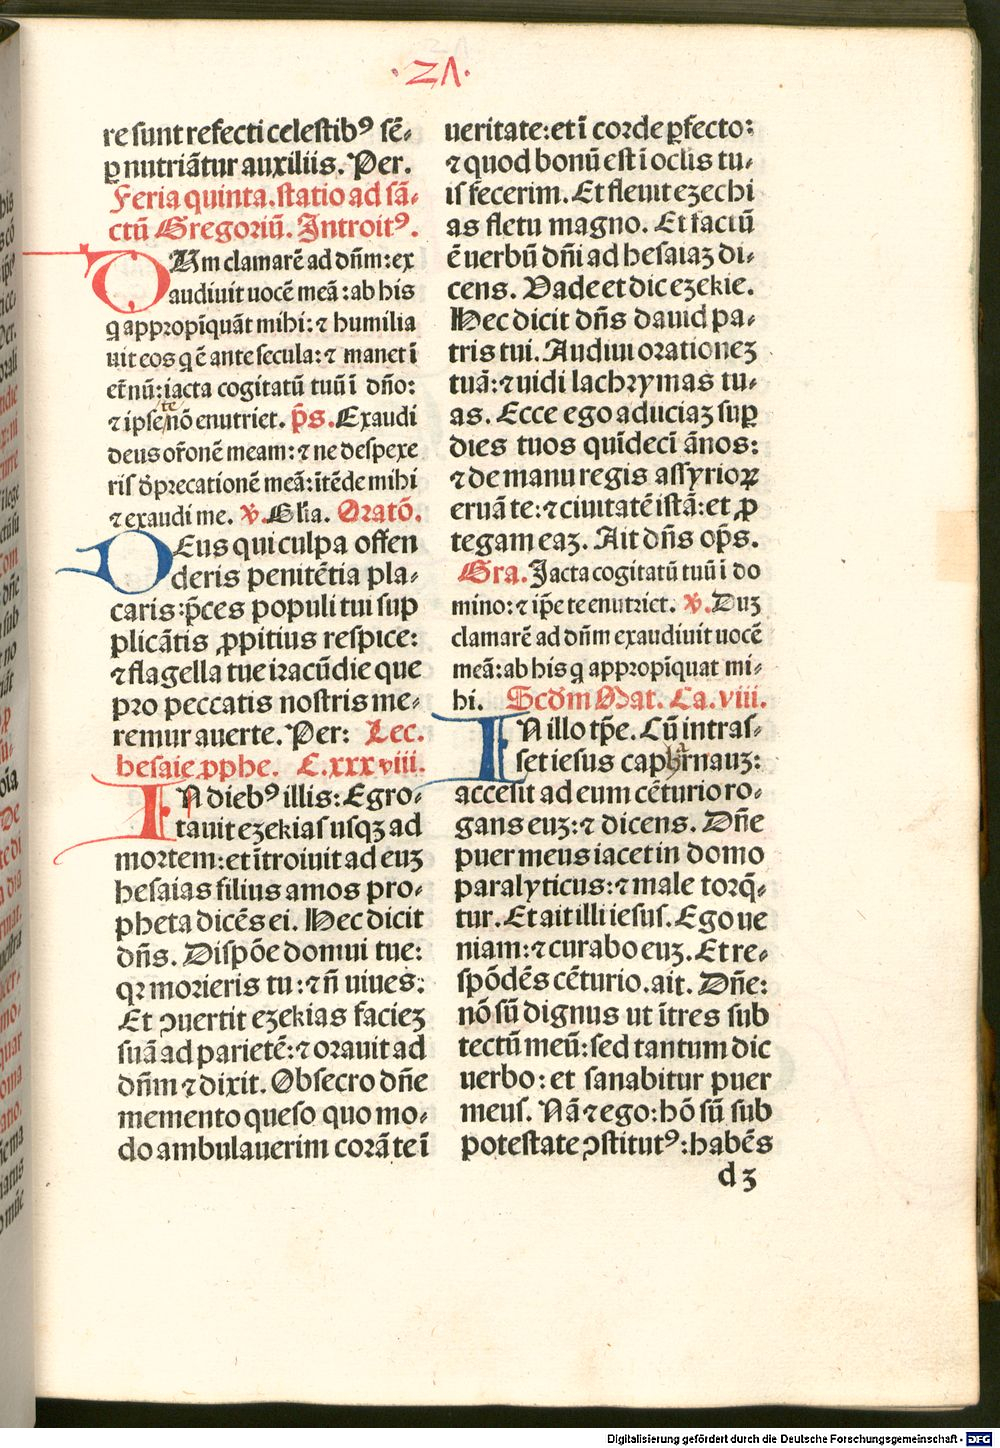 ·21·
re sunt refecti celestibꝰ sē-
ꝑ nutriātur auxiliis. Per.
Feria quinta. statio ad sā-
ctū Gregoriū. Introitꝰ.
DUm clamarē ad dn̄m: ex
audiuit uocē meā: ab his
q appropīquāt mihi: ⁊ humilia
uit eos q ē ante secula: ⁊ manet ī
et̄nū: iacta cogitatū tuū ī dn̄o:
te
⁊ ipse nō enutriet. p̄s. Exaudi
deus or̄onē meam: ⁊ ne despexe
ris dp̄recationē meā: ītēde mihi
⁊ exaudi me. v̄. Gl̄ia. Oratō.
DEus qui culpa offen
deris penitētia pla-
caris: p̄ces populi tui sup
plicātis ꝓpitius respice:
⁊ flagella tue iracūdie que
pro peccatis nostris me-
remur auerte. Per: Lec.
hesaie ꝓphe. C. xxxviii.
IN diebꝰ illis: Egro-
tauit ezekias usqꝫ ad
mortem: et ītroiuit ad euꝫ
hesaias filius amos pro-
pheta dicēs ei. Hec dicit
dn̄s. Dispōe domui tue:
qꝛ morieris tu: ⁊ n̄ uiues:
Et ꝯuertit ezekias facieꝫ
suā ad parietē: ⁊ orauit ad
dn̄m ⁊ dixit. Obsecro dn̄e
memento queso quo mo-
do ambulauerim corā te ī
ueritate: et ī corde ꝑfecto:
⁊ quod bonū est ī oclis tu-
is fecerim. Et fleuit ezechi
as fletu magno. Et factū
ē uerbū dn̄i ad hesaiaꝫ di-
cens. Vade et dic ezekie.
Hec dicit dn̄s dauid pa-
tris tui. Audiui orationeꝫ
tuā: ⁊ uidi lachrymas tu-
as. Ecce ego aduciaꝫ suꝑ
dies tuos quīdecī ānos:
⁊ de manu regis assyrioꝝ
eruā te: ⁊ ciuitatē istā: et ꝓ
tegam eaꝫ. Ait dn̄s op̄s.
Gra. Iacta cogitatū tuū ī do
mino: ⁊ ip̄e te enutriet. v̄. Duꝫ
clamarē ad dn̄m exaudiuit uocē
meā: ab his q appropīquat mi-
hi. Scd̄m Mat. Ca. viii.
IN illo tp̄e. Cū intras-
set iesus capharnauꝫ:
accesit ad eum cēturio ro-
gans euꝫ: ⁊ dicens. Dn̄e
puer meus iacet in domo
paralyticus: ⁊ male torq̄-
tur. Et ait illi iesus. Ego ue
niam: ⁊ curabo euꝫ. Et re-
spōdēs cēturio. ait. Dn̄e:
nō sū dignus ut ītres sub
tectū meū: sed tantum dic
uerbo: et sanabitur puer
meus. Nā ⁊ ego: hō sū sub
potestate ꝯstitutꝰ: habēs
d 3
Digitalisierung gefördert durch die Deutsche Forschungsgemeinschaft - DFG